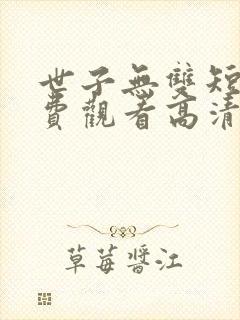 世子無雙短
費觀看高清
草莓醬江